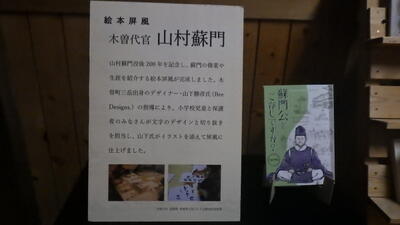 絵本屏風
木曽代官 山村蘇門
山村蘇門没後200年を記念し、蘇門の偉業や
生涯を紹介する絵本屏風が完成しました。木
曽町三岳出身のデザイナー・山下勝彦氏(Bee
Designs.)の指導により、小学校児童と保護
者のみなさんが文字のデザインと切り抜き
を担当し、山下氏がイラストを添えて屏風に
仕上げました。
蘇門公を
ご存じですか?